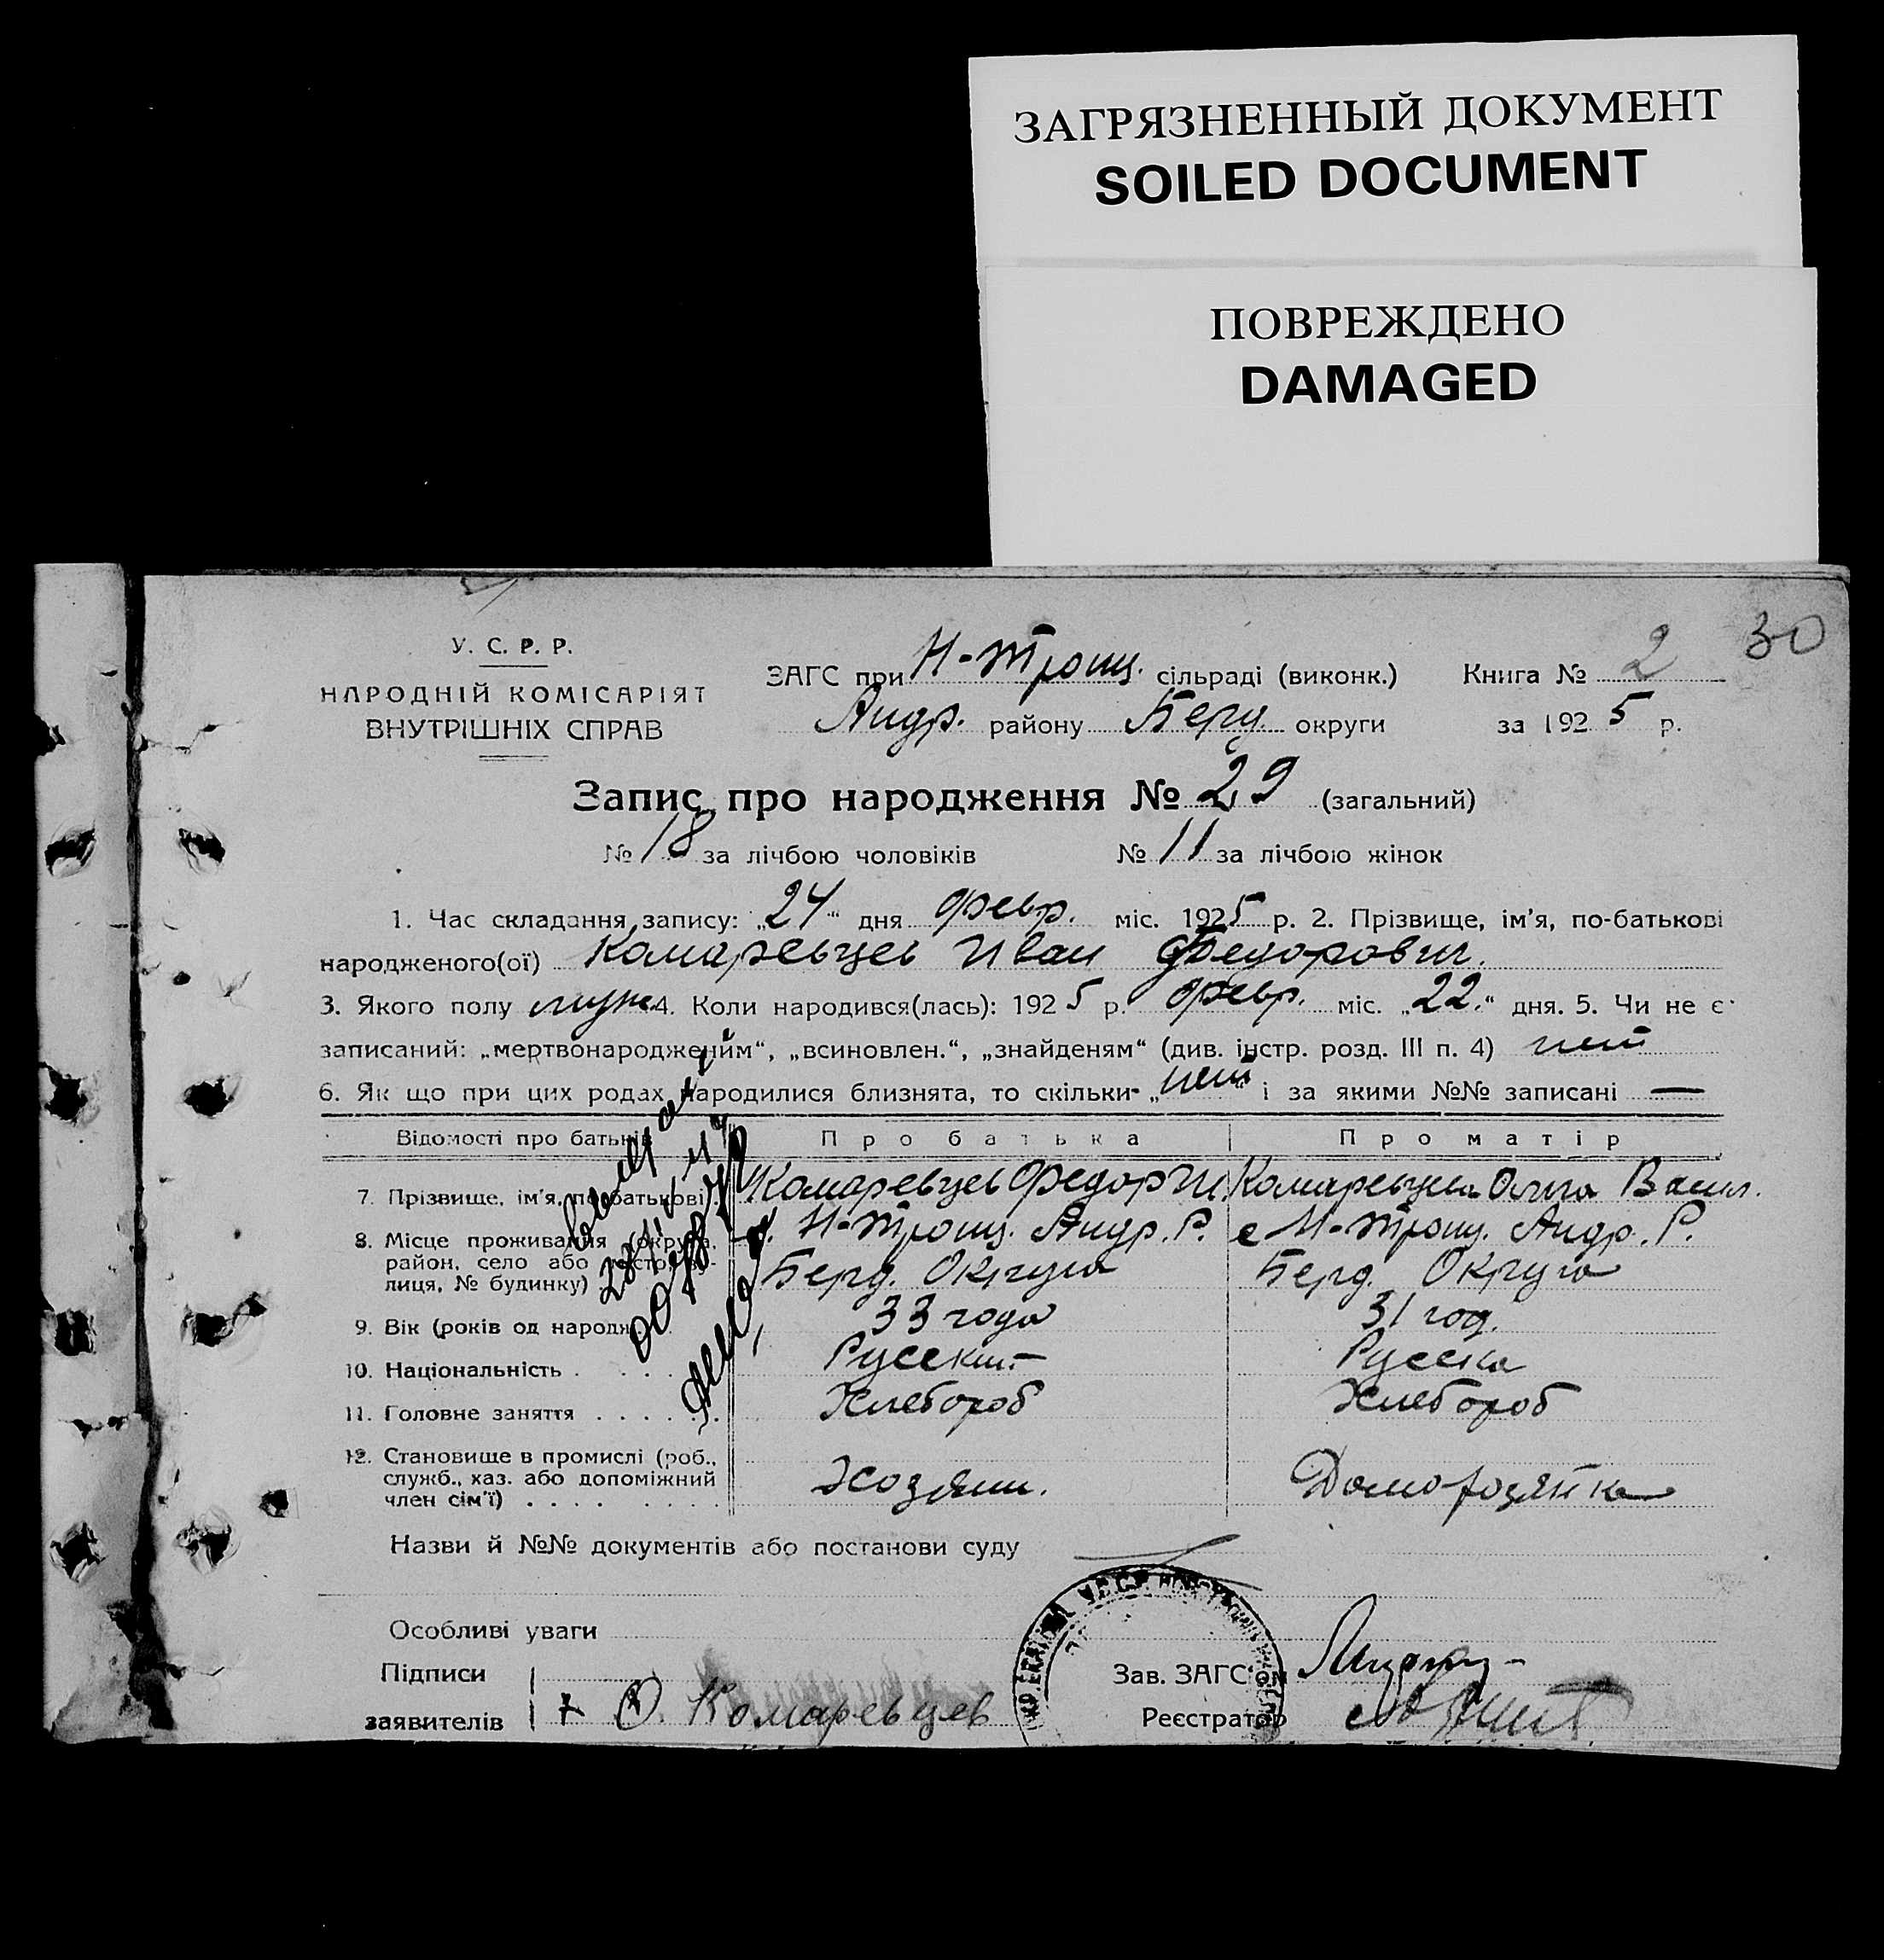 ЗАГРЯЗНЕННЫЙ ДОКУМЕНТ
SOILED DOCUMENT
ПОВРЕЖДЕНО
DAMAGED
30
У. С. Р. Р.
НАРОДНІЙ КОМІСАРІЯТ
ВНУТРІШНІХ СПРАВ
ЗАГС при Н-Троиц. сільраді (виконк.) Книга № 2
Андр. району Берд. округи за 1925 р.
Запис про народження № 29 (загальний)
№ 18 за лічбою чоловіків № 11 за лічбою жінок
1. Час складання запису: „24“ дня февр. міс. 1925 р. 2. Прізвище, ім'я, по-батькові
народженого(ої) Комаревцев Иван Федорович.
3. Якого полу муж 4. Коли народився(лась): 1925 р. февр. міс. „22.“ дня. 5. Чи не є
записаний: „мертвонародженим“, „всиновлен.“, „знайденям“ (див. інстр. розд. III п. 4) нет
6. Як що при цих родах народилися близнята, то скільки „нет“ і за якими №№ записані —
Відомості про батьків Про батька Про матір
7. Прізвище, ім'я, по-батькові Комаревцев Федор Комаревцева Ольга Васил.
8. Місце проживання (округа, район, село або місто, вулиця, № будинку) с. Н-Троиц. Андр. Р. с Н-Троиц. Андр. Р.
Берд. Округа Берд. Округа
9. Вік (років од народж. 33 года 31 год.
10. Національність . . . . Русский Русска
11. Головне заняття . . . . . . Хлебороб Хлебороб
12. Становище в промислі (роб., служб., хаз. або допоміжний член сім'ї) . . . . . . . . Хозяин. Домохозяйка
Назви й №№ документів або постанови суду
Особливі уваги
Підписи
заявителів Ф. Комаревцев
Зав. ЗАГС'ом
Реєстратор